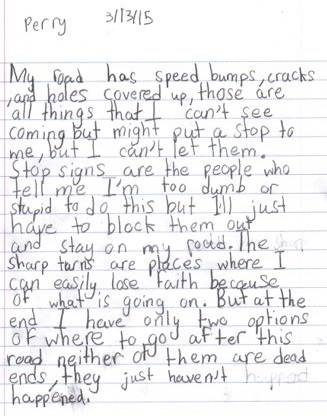 Perry 3/13/15
My road has speed bumps, cracks
,and holes covered up, those are
all things that I can't see
coming but might put a stop to
me, but I can't let them.
Stop signs are the people who
tell me I'm too dumb or
stupid to do this but I'll just
have to block them out
and stay on my road. The
sharp turns are places where I
can easily lose faith because
of what is going on. But at the
end I have only two options
of where to go after this
road neither of them are dead
ends, they just haven't
happened.